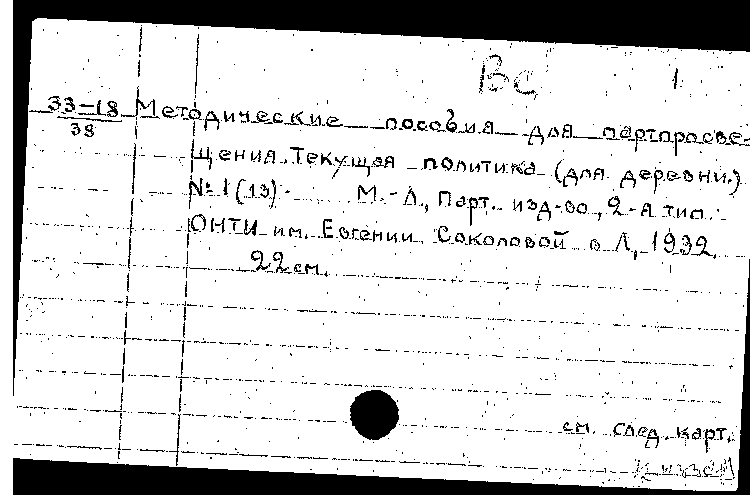 Вс 1.
33-18 Методические пособия для партпросве-
38
щения. Текущая политика (для деревни.)
№ 1 (13). М.-Л., Парт. изд-во, 2-я тип.
ОНТИ им. Евгении Соколовой в Л, 1932.
22 см.
см. след. карт.